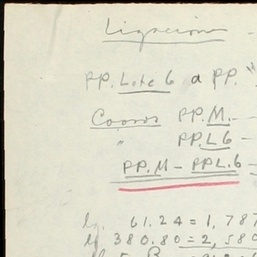 PP. Lote 6 a PP. "
Coords PP. M. —
" PP. L6 —
PP. M — PP. L. 6 —
lg. 61.24 = 1,787
lg 380.80 = 2,580